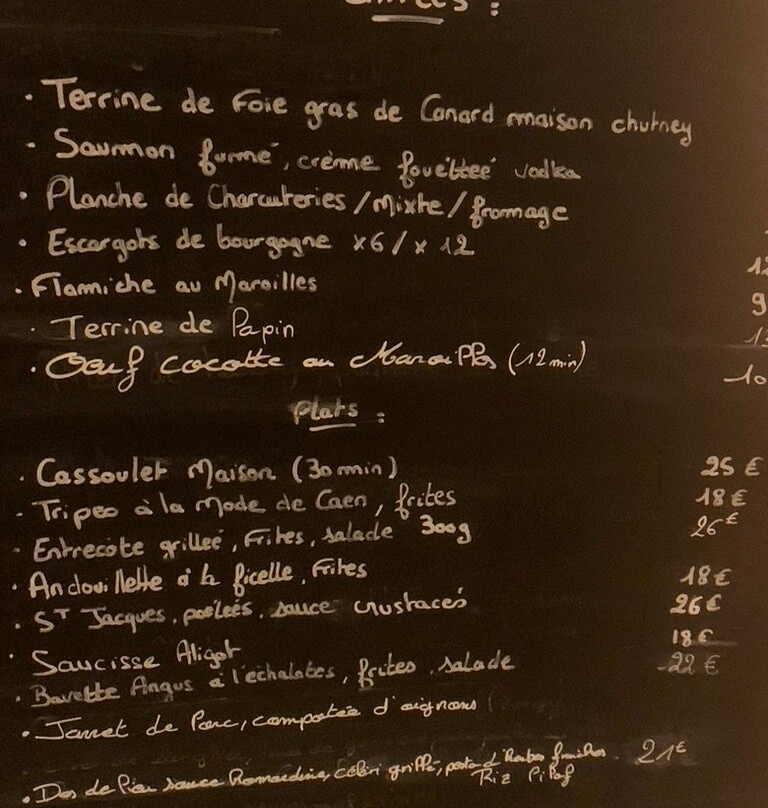 · Terrine de Foie gras de Canard maison chutney
· Saumon fumé, crème fouéttée vodka
· Planche de Charcuteries / Mixte / fromage
· Escargots de bourgogne x6 / x 12
· Flamiche au Maroilles
· Terrine de Papin
· Oeuf cocotte au Maroilles (12 min) 10
Plats :
· Cassoulet Maison (30 min) 25 €
· Tripes à la Mode de Caen, frites 18 €
· Entrecôte grillée, Frites, salade 300g 26 €
· Andouillette à la ficelle, Frites 18 €
· St Jacques, poélées, sauce crustacés 26 €
· Saucisse Aligot 18 €
· Bavette Angus à l'échalotes, frites, salade 22 €
· Jarret de Porc, compotée d'oignons
· Dos de sauce céleri grillé, d'herbes fraîches 21 €
Riz Pilaf